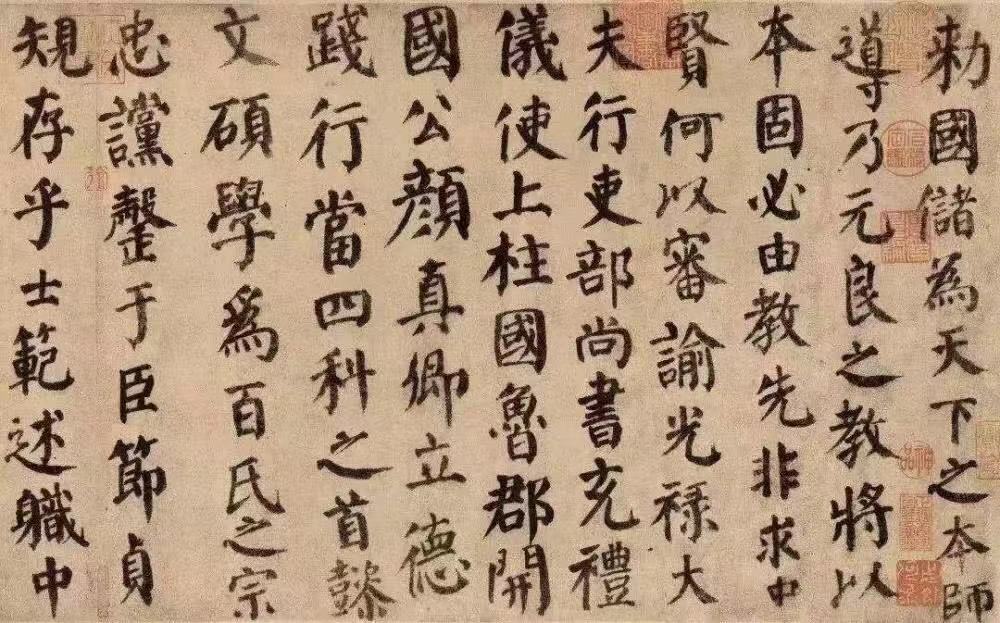 勑國儲為天下之本師
導乃元良之教將以
本固必由教先非求中
賢何以審諭光禄大
夫行吏部尚書充禮
儀使上柱國魯郡開
國公顔真卿立德
踐行當四科之首懿
文碩學爲百氏之宗
忠讜罄于臣節貞
䂓存乎士範述職中